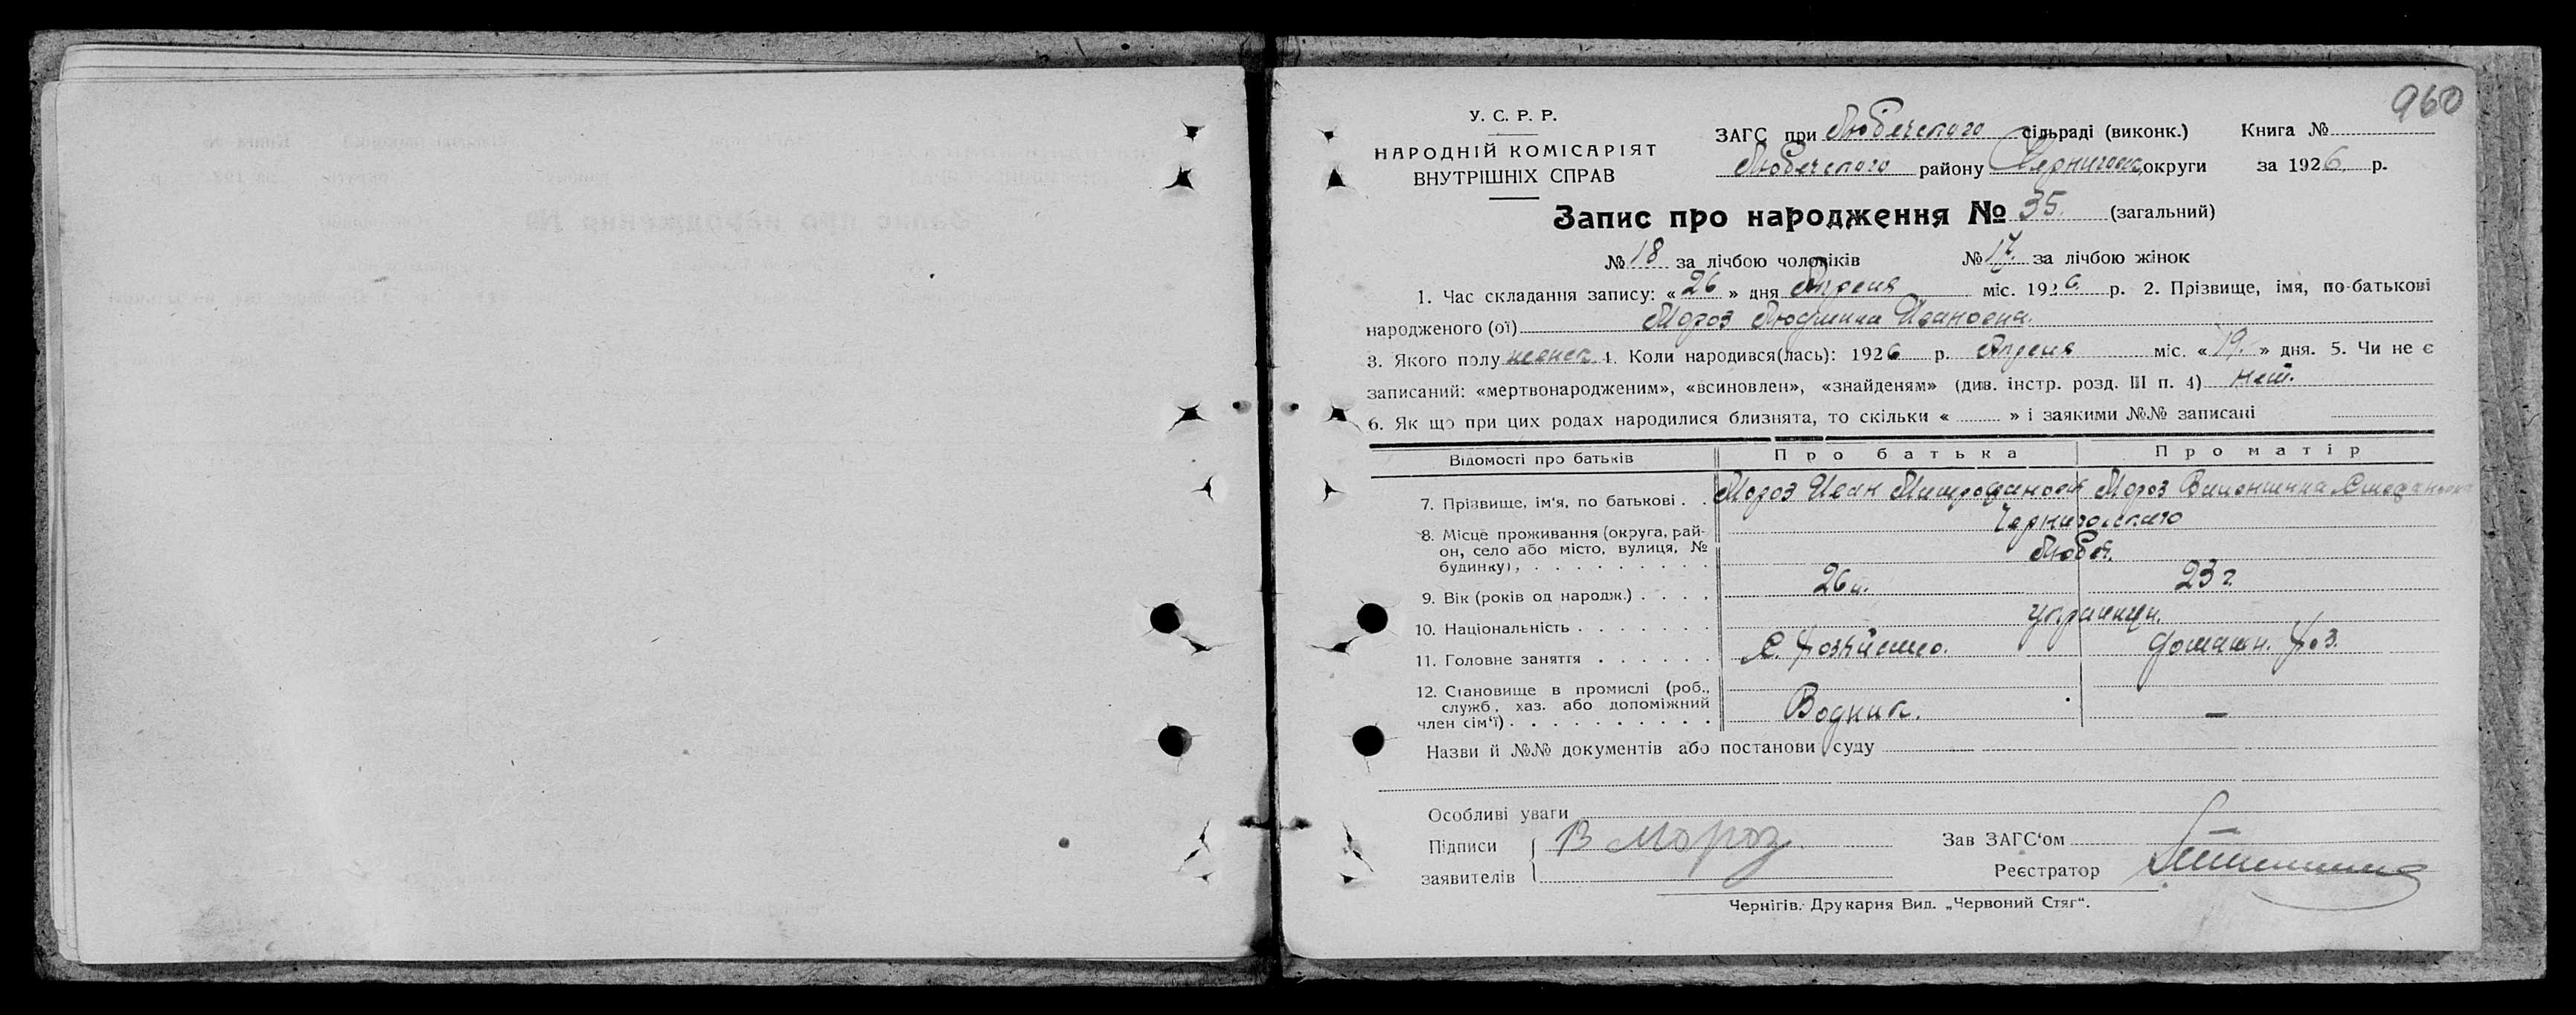 960
У. С. Р. Р.
НАРОДНІЙ КОМІСАРІЯТ
ВНУТРІШНІХ СПРАВ
ЗАГС при Любечского сільраді (виконк.) Книга №
Любечского району Черниговск. округи за 1926 р.
Запис про народження № 35. (загальний)
№ 18 за лічбою чоловіків № 17. за лічбою жінок
1. Час складання запису: « 26 » дня Апреля міс. 1926 р. 2. Прізвище, імя, по-батькові
народженого (ої) Мороз Людмила Ивановна.
3. Якого полу женск. 4. Коли народився(лась): 1926 р. Апреля міс. « 19. » дня. 5. Чи не є
записаний: «мертвонародженим», «всиновлен», «знайденям» (див. інстр. розд. III п. 4) нет.
6. Як що при цих родах народилися близнята, то скільки « » і заякими №№ записані
Відомості про батьків Про батька Про матір
7. Прізвище, ім'я, по батькові . . Мороз Иван Митрофанович Мороз Валентина Стефановна
8. Місце проживання (округа, рай- Черниговского
он, село або місто, вулиця, № Любеч.
будинку),
9. Вік (років од народж.) 26 л. 23 г.
10. Національність украинцы.
11. Головне заняття С. хозяйство. домашн. хоз.
12. Становище в промислі (роб.,
служб, хаз. або допоміжний
член сім'ї) Водник. —
Назви й №№ документів або постанови суду
Особливі уваги
Підписи В Мороз Зав ЗАГС'ом
заявителів Реєстратор
Чернігів. Друкарня Вид. „Червоний Стяг".